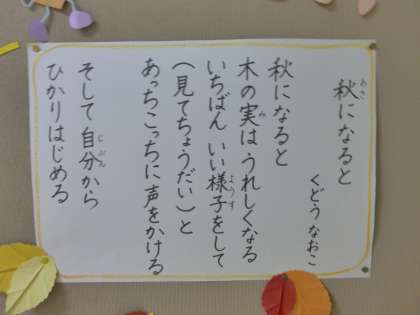 秋になると
くどう なおこ
秋になると
木の実は うれしくなる
いちばん いい様子をして
(見てちょうだい)と
あっちこっちに声をかける
そして 自分から
ひかりはじめる